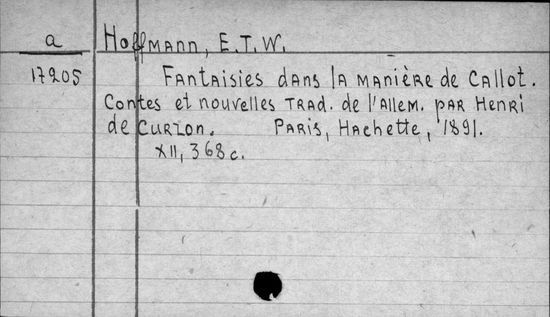 a
17205
Hoffmann, E.T.W.
Fantaisies dans la manière de Callot.
Contes et nouvelles trad. de l'allem. par Henri
de Curzon. Paris, Hachette, 1891.
XII, 368 c.